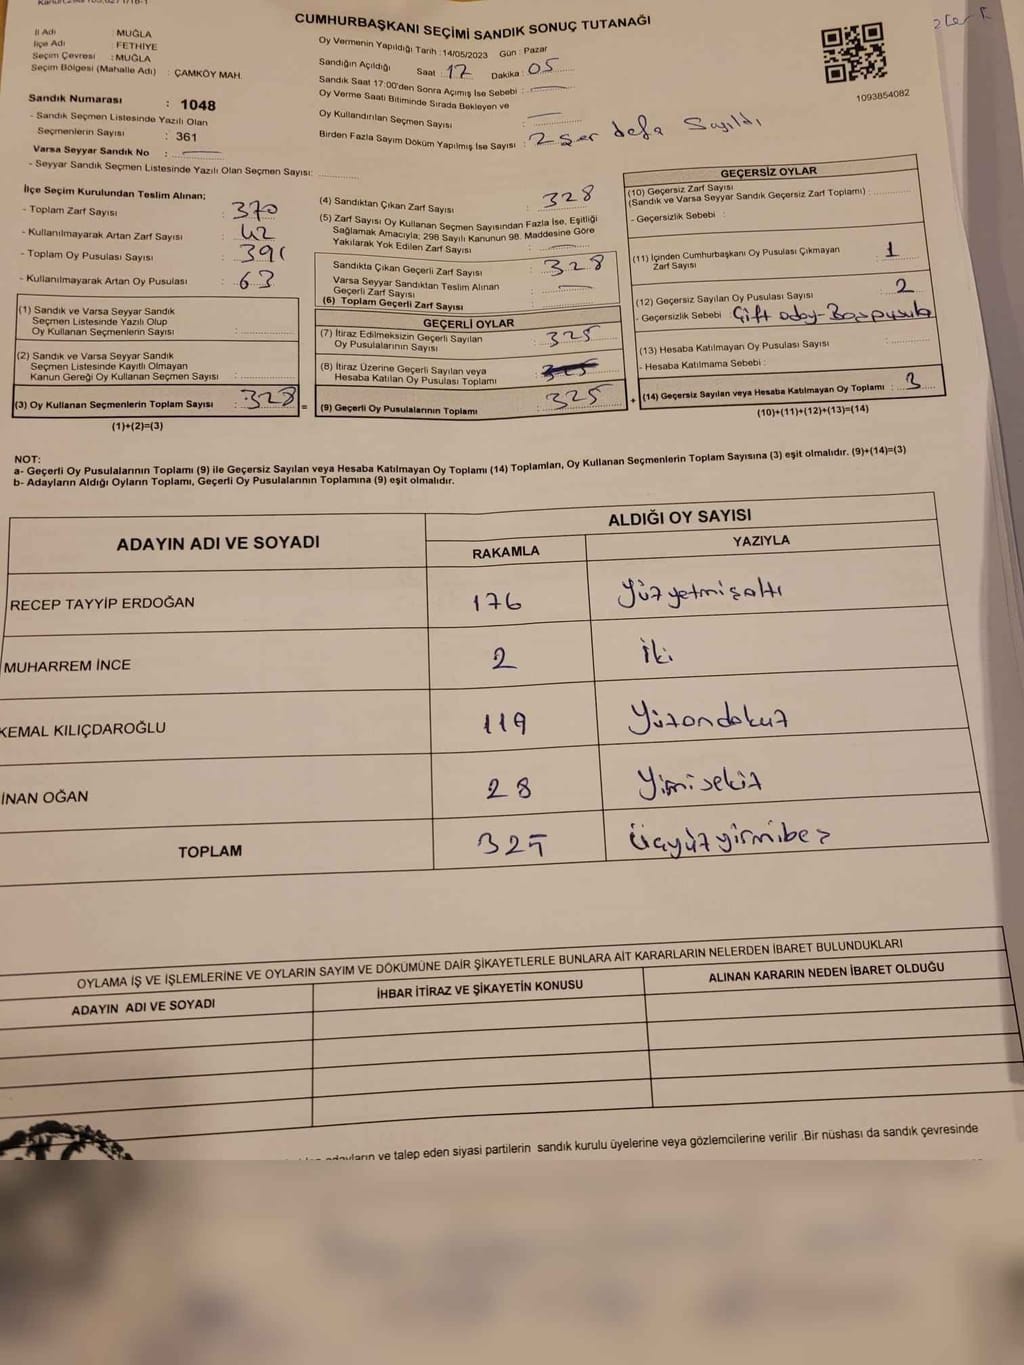 CUMHURBAŞKANI SEÇİMİ SANDIK SONUÇ TUTANAĞI
İl Adı : MUĞLA
İlçe Adı : FETHİYE
Seçim Çevresi : MUĞLA
Seçim Bölgesi (Mahalle Adı) : ÇAMKÖY MAH.
Sandık Numarası : 1048
- Sandık Seçmen Listesinde Yazılı Olan
Seçmenlerin Sayısı : 361
Varsa Seyyar Sandık No :
- Seyyar Sandık Seçmen Listesinde Yazılı Olan Seçmen Sayısı:
Oy Vermenin Yapıldığı Tarih : 14/05/2023 Gün : Pazar
Sandığın Açıldığı Saat 17 Dakika : 05
Sandık Saat 17:00'den Sonra Açımış İse Sebebi :
Oy Verme Saati Bitiminde Sırada Bekleyen ve
Oy Kullandırılan Seçmen Sayısı :
Birden Fazla Sayım Döküm Yapılmış İse Sayısı : 2 şer defa Sayıldı
1093854082
İlçe Seçim Kurulundan Teslim Alınan;
- Toplam Zarf Sayısı : 370
- Kullanılmayarak Artan Zarf Sayısı : 42
- Toplam Oy Pusulası Sayısı : 391
- Kullanılmayarak Artan Oy Pusulası : 63
(1) Sandık ve Varsa Seyyar Sandık
Seçmen Listesinde Yazılı Olup
Oy Kullanan Seçmenlerin Sayısı :
(2) Sandık ve Varsa Seyyar Sandık
Seçmen Listesinde Kayıtlı Olmayan
Kanun Gereği Oy Kullanan Seçmen Sayısı :
(3) Oy Kullanan Seçmenlerin Toplam Sayısı : 328 =
(1)+(2)=(3)
(4) Sandıktan Çıkan Zarf Sayısı : 328
(5) Zarf Sayısı Oy Kullanan Seçmen Sayısından Fazla İse, Eşitliği
Sağlamak Amacıyla; 298 Sayılı Kanunun 98. Maddesine Göre
Yakılarak Yok Edilen Zarf Sayısı :
Sandıkta Çıkan Geçerli Zarf Sayısı : 328
Varsa Seyyar Sandıktan Teslim Alınan
Geçerli Zarf Sayısı :
(6) Toplam Geçerli Zarf Sayısı
GEÇERLİ OYLAR
(7) İtiraz Edilmeksizin Geçerli Sayılan
Oy Pusulalarının Sayısı : 325
(8) İtiraz Üzerine Geçerli Sayılan veya
Hesaba Katılan Oy Pusulası Toplamı :
(9) Geçerli Oy Pusulalarının Toplamı : 325 +
GEÇERSİZ OYLAR
(10) Geçersiz Zarf Sayısı
(Sandık ve Varsa Seyyar Sandık Geçersiz Zarf Toplamı) :
- Geçersizlik Sebebi :
(11) İçinden Cumhurbaşkanı Oy Pusulası Çıkmayan
Zarf Sayısı : 1
(12) Geçersiz Sayılan Oy Pusulası Sayısı : 2
- Geçersizlik Sebebi : Çift aday-Boş pusula
(13) Hesaba Katılmayan Oy Pusulası Sayısı :
- Hesaba Katılmama Sebebi :
(14) Geçersiz Sayılan veya Hesaba Katılmayan Oy Toplamı : 3
(10)+(11)+(12)+(13)=(14)
NOT:
a- Geçerli Oy Pusulalarının Toplamı (9) ile Geçersiz Sayılan veya Hesaba Katılmayan Oy Toplamı (14) Toplamları, Oy Kullanan Seçmenlerin Toplam Sayısına (3) eşit olmalıdır. (9)+(14)=(3)
b- Adayların Aldığı Oyların Toplamı, Geçerli Oy Pusulalarının Toplamına (9) eşit olmalıdır.
ADAYIN ADI VE SOYADI
ALDIĞI OY SAYISI
RAKAMLA YAZIYLA
RECEP TAYYİP ERDOĞAN 176 Yüzyetmişaltı
MUHARREM İNCE 2 İki
KEMAL KILIÇDAROĞLU 119 Yüzondokuz
İNAN OĞAN 28 Yirmisekiz
TOPLAM 325 Üçyüzyirmibeş
OYLAMA İŞ VE İŞLEMLERİNE VE OYLARIN SAYIM VE DÖKÜMÜNE DAİR ŞİKAYETLERLE BUNLARA AİT KARARLARIN NELERDEN İBARET BULUNDUKLARI
ADAYIN ADI VE SOYADI İHBAR İTİRAZ VE ŞİKAYETİN KONUSU ALINAN KARARIN NEDEN İBARET OLDUĞU
adayların ve talep eden siyasi partilerin sandık kurulu üyelerine veya gözlemcilerine verilir .Bir nüshası da sandık çevresinde